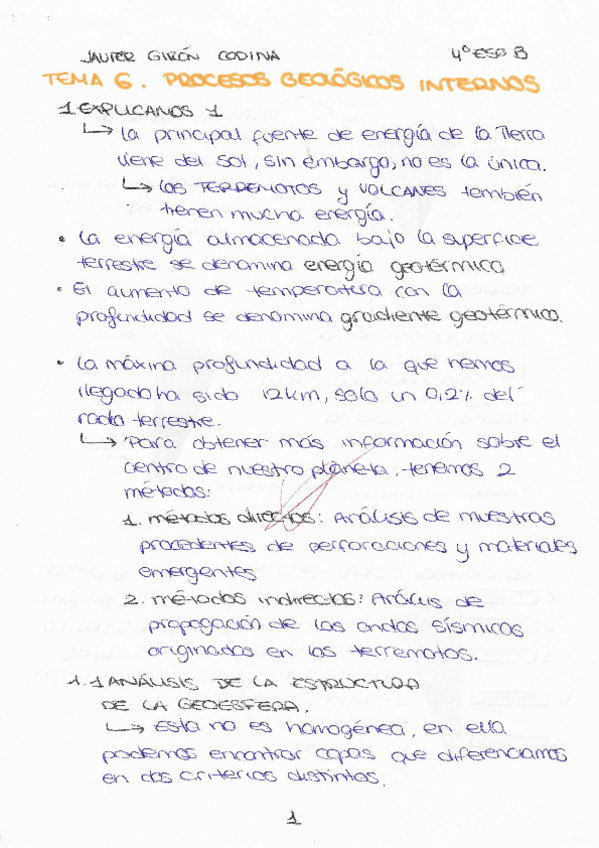 JAVIER GIRÓN CODINA 4º ESO B
TEMA 6. PROCESOS GEOLÓGICOS INTERNOS
1 EXPLICANOS 1
↳ La principal fuente de energía de la Tierra
viene del sol, sin embargo, no es la única.
↳ los TERREMOTOS y VOLCANES también
tienen mucha energía.
• La energía almacenada bajo la superficie
terrestre se denomina energía geotérmica
• El aumento de temperatura con la
profundidad se denomina gradiente geotérmico.
• La máxima profundidad a la que hemos
llegado ha sido 12km, solo un 0,2% del
radio terrestre.
↳ Para obtener más información sobre el
centro de nuestro planeta, tenemos 2
métodos:
1. métodos directos: Análisis de muestras
procedentes de perforaciones y materiales
emergentes
2. métodos indirectos: Análisis de
propagación de las ondas sísmicas
originadas en los terremotos.
1.1 ANÁLISIS DE LA ESTRUCTURA
DE LA GEOESFERA.
↳ Esta no es homogénea, en ella
podemos encontrar capas que diferenciamos
en dos criterios distintos.
1